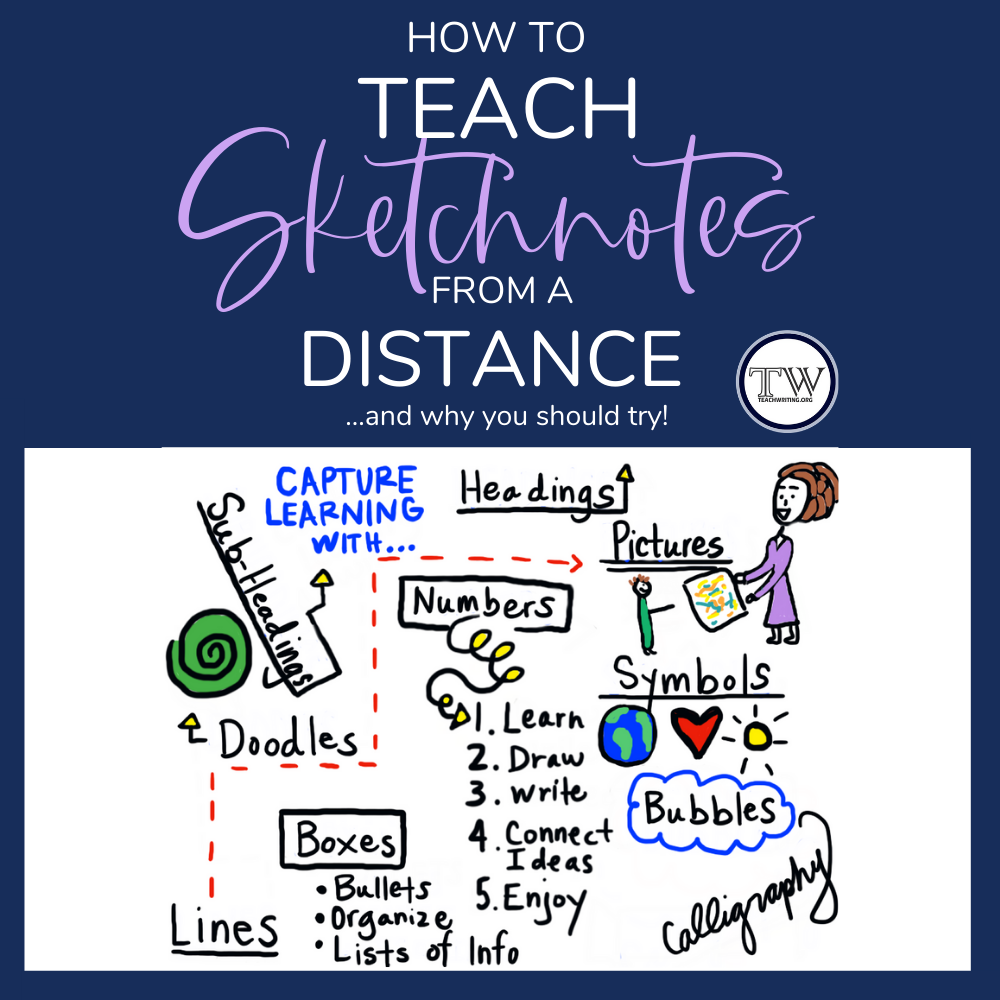 HOW TO
TEACH
Sketchnotes
FROM A
DISTANCE
...and why you should try!
TW
TEACHWRITING.ORG
CAPTURE
LEARNING
WITH...
Headings
Sub-Headings
Pictures
Numbers
1. Learn
2. Draw
3. Write
4. Connect
Ideas
5. Enjoy
Symbols
Doodles
Bubbles
Boxes
• Bullets
• Organize
• Lists of Info
Lines
Calligraphy